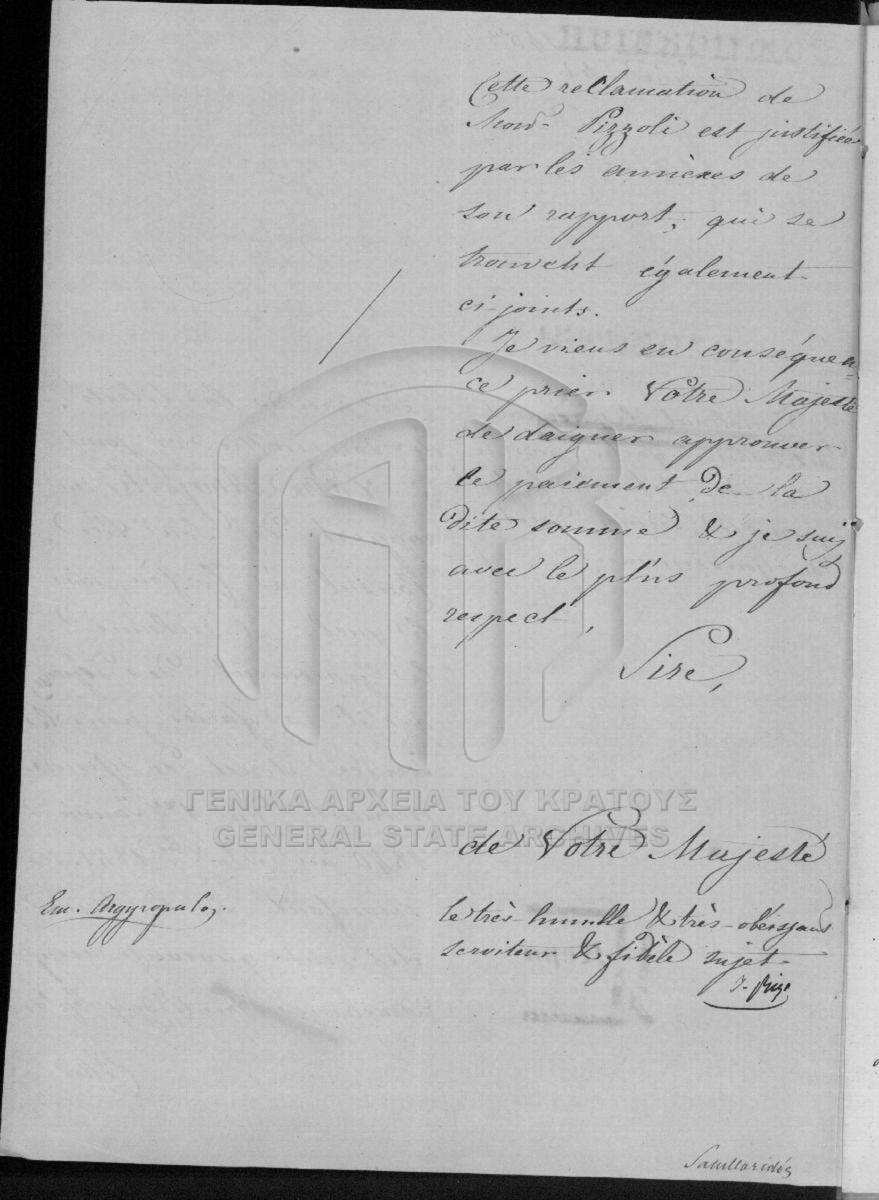 Cette reclamation de
Mons. Pizzoli est justifiée
par les annexes de
son rapport, qui se
trouvent également
ci-joints.
Je viens en conséquen=
ce prier Votre Majesté
de daigner approuver
le paiement de la
dite somme & je suis
avec le plus profond
respect,
Sire,
ΓΕΝΙΚΑ ΑΡΧΕΙΑ ΤΟΥ ΚΡΑΤΟΥΣ
GENERAL STATE ARCHIVES
de Votre Majesté
Em. Argyropulos.
le très-humble & très-obéissant
serviteur & fidèle sujet
J. Rizo